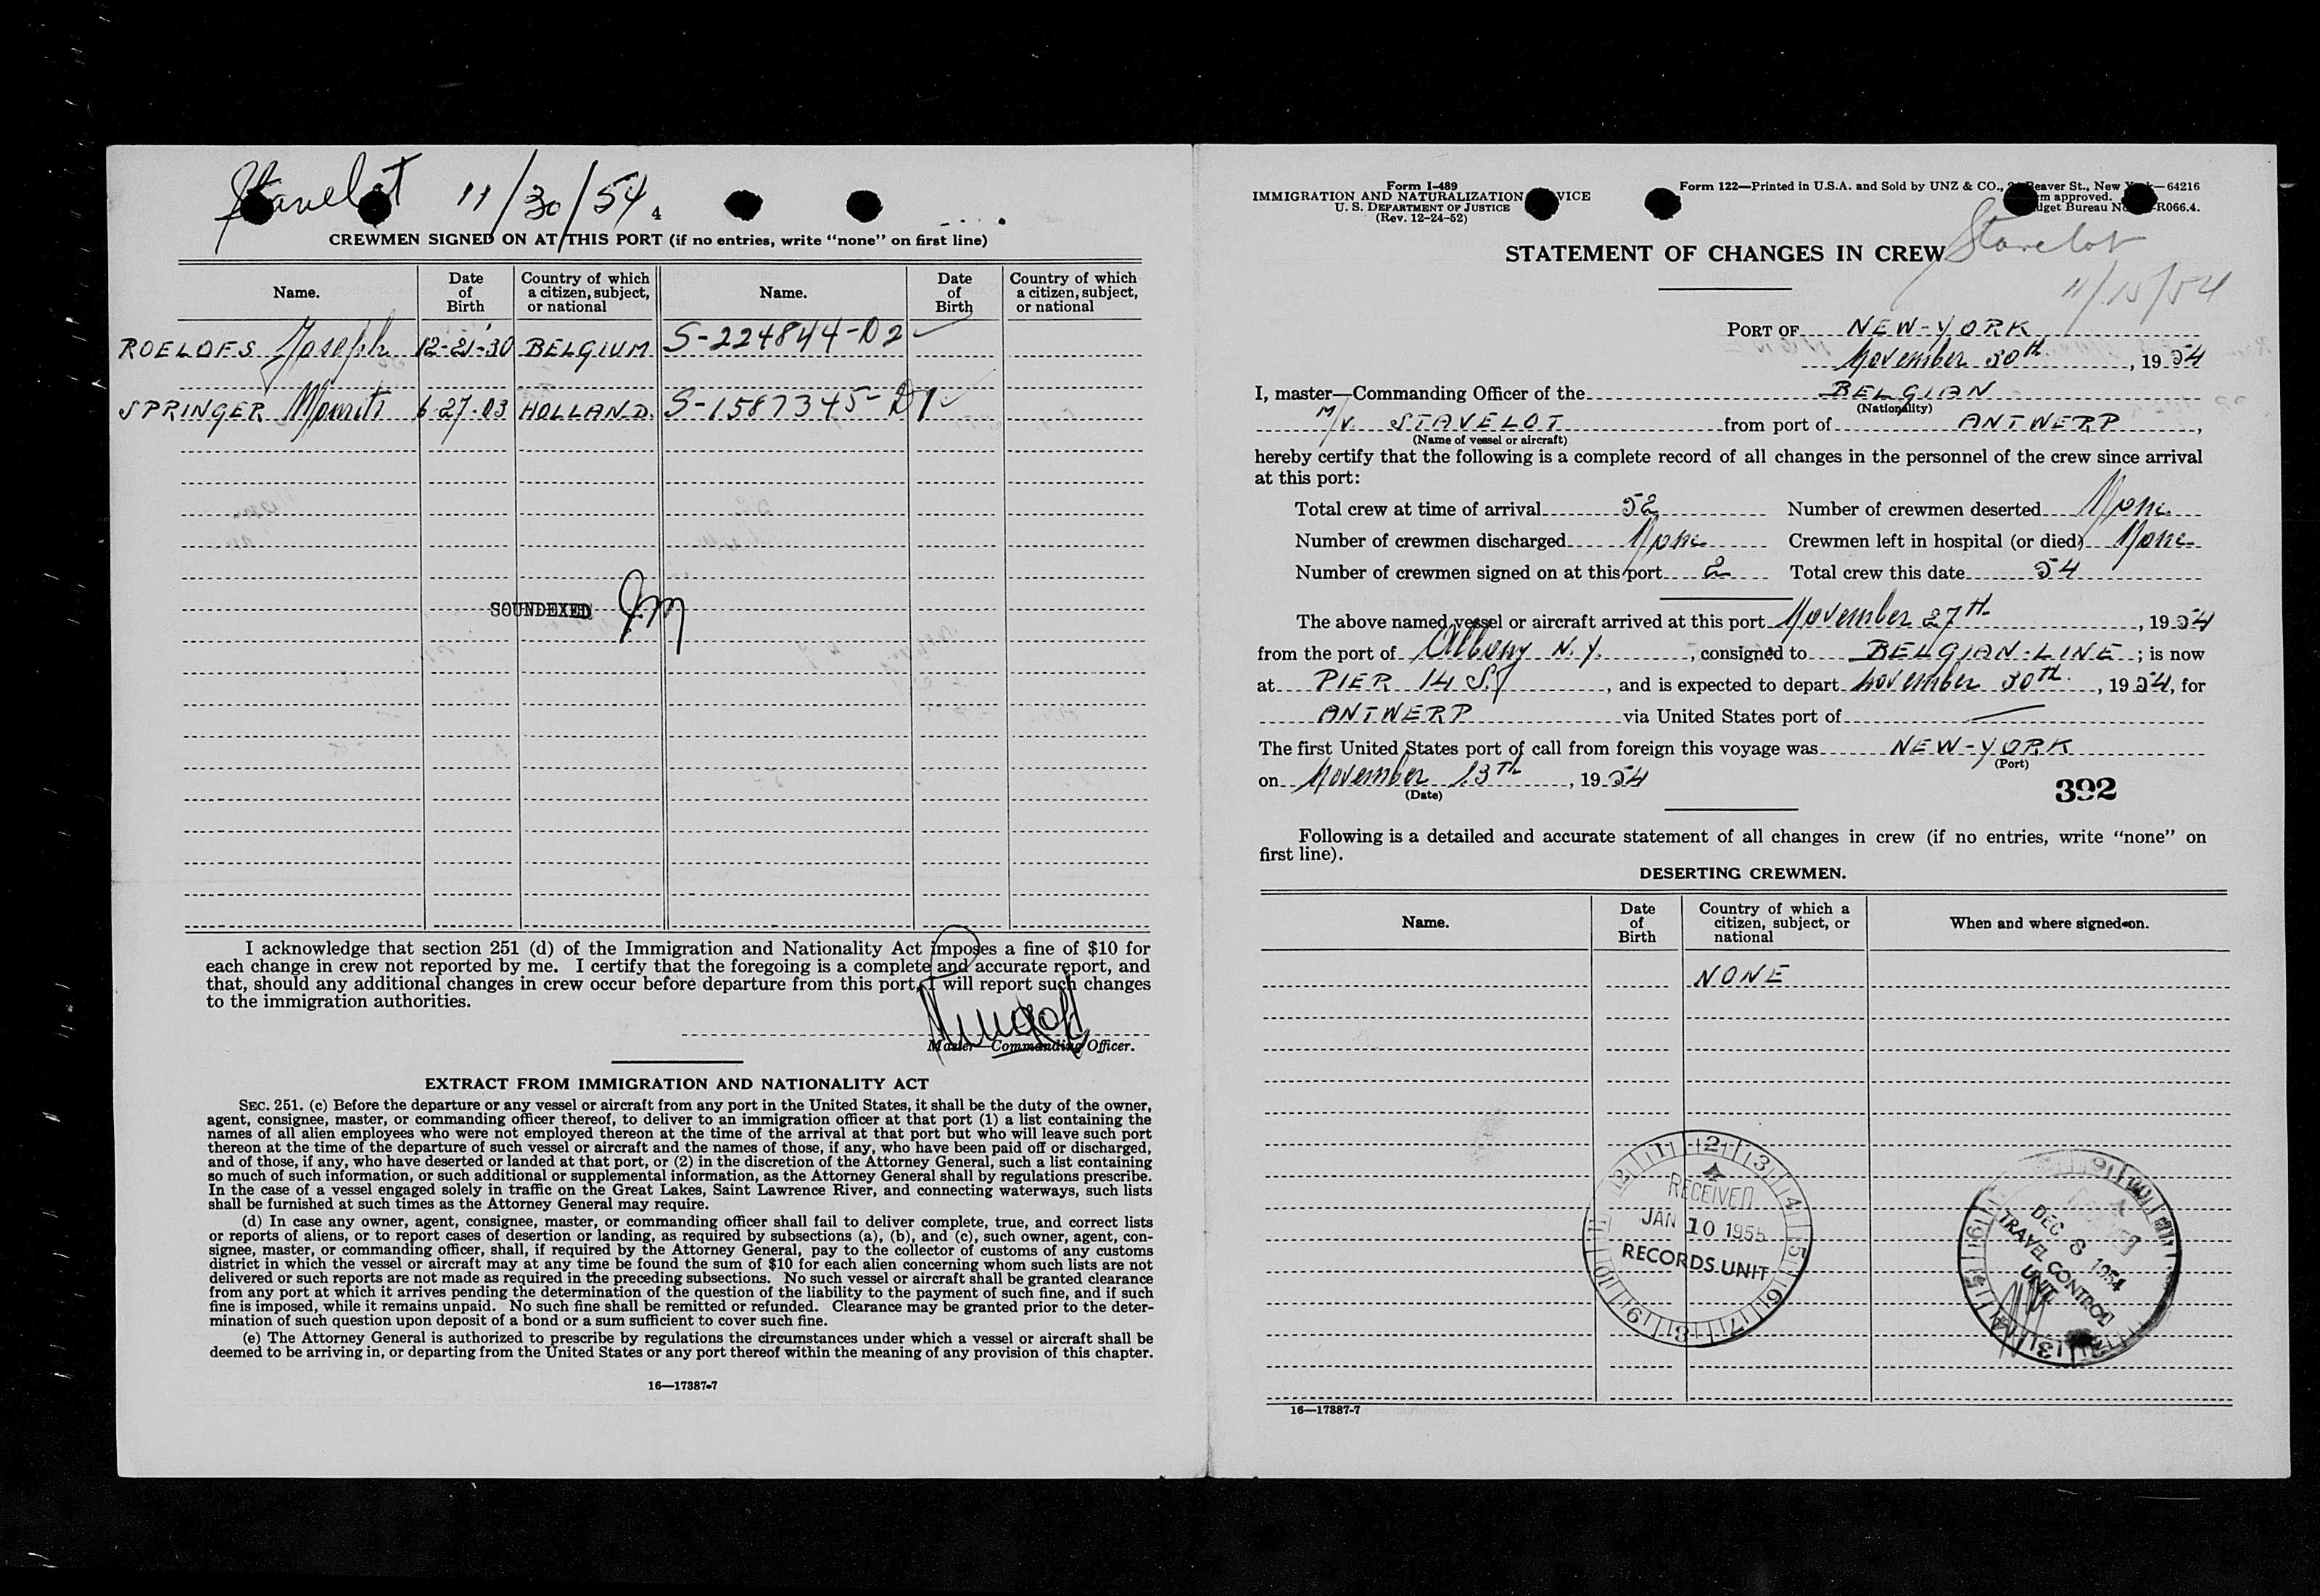 Stavelot 11/30/54
4
CREWMEN SIGNED ON AT THIS PORT (if no entries, write “none” on first line)
Name. Date of Birth Country of which a citizen, subject, or national Name. Date of Birth Country of which a citizen, subject, or national
ROELOFS Joseph 12-21-30 BELGIUM S-224844-D2
SPRINGER Mourits 6-27-03 HOLLAND. S-1587345-D1
SOUNDEXED JM
I acknowledge that section 251 (d) of the Immigration and Nationality Act imposes a fine of $10 for
each change in crew not reported by me. I certify that the foregoing is a complete and accurate report, and
that, should any additional changes in crew occur before departure from this port, I will report such changes
to the immigration authorities.
Master—Commanding Officer.
EXTRACT FROM IMMIGRATION AND NATIONALITY ACT
SEC. 251. (c) Before the departure or any vessel or aircraft from any port in the United States, it shall be the duty of the owner,
agent, consignee, master, or commanding officer thereof, to deliver to an immigration officer at that port (1) a list containing the
names of all alien employees who were not employed thereon at the time of the arrival at that port but who will leave such port
thereon at the time of the departure of such vessel or aircraft and the names of those, if any, who have been paid off or discharged,
and of those, if any, who have deserted or landed at that port, or (2) in the discretion of the Attorney General, such a list containing
so much of such information, or such additional or supplemental information, as the Attorney General shall by regulations prescribe.
In the case of a vessel engaged solely in traffic on the Great Lakes, Saint Lawrence River, and connecting waterways, such lists
shall be furnished at such times as the Attorney General may require.
(d) In case any owner, agent, consignee, master, or commanding officer shall fail to deliver complete, true, and correct lists
or reports of aliens, or to report cases of desertion or landing, as required by subsections (a), (b), and (c), such owner, agent, con-
signee, master, or commanding officer, shall, if required by the Attorney General, pay to the collector of customs of any customs
district in which the vessel or aircraft may at any time be found the sum of $10 for each alien concerning whom such lists are not
delivered or such reports are not made as required in the preceding subsections. No such vessel or aircraft shall be granted clearance
from any port at which it arrives pending the determination of the question of the liability to the payment of such fine, and if such
fine is imposed, while it remains unpaid. No such fine shall be remitted or refunded. Clearance may be granted prior to the deter-
mination of such question upon deposit of a bond or a sum sufficient to cover such fine.
(e) The Attorney General is authorized to prescribe by regulations the circumstances under which a vessel or aircraft shall be
deemed to be arriving in, or departing from the United States or any port thereof within the meaning of any provision of this chapter.
16—17387-7
Form I-489
IMMIGRATION AND NATURALIZATION VICE
U. S. DEPARTMENT OF JUSTICE
(Rev. 12-24-52)
Form 122—Printed in U.S.A. and Sold by UNZ & CO., Beaver St., New —64216
m approved.
dget Bureau N -R066.4.
STATEMENT OF CHANGES IN CREW
Stavelot
11/15/54
PORT OF NEW-YORK
November 30th, 1954
I, master—Commanding Officer of the BELGIAN
(Nationality)
M/V. STAVELOT from port of ANTWERP,
(Name of vessel or aircraft)
hereby certify that the following is a complete record of all changes in the personnel of the crew since arrival
at this port:
Total crew at time of arrival 52 Number of crewmen deserted None
Number of crewmen discharged None Crewmen left in hospital (or died) None
Number of crewmen signed on at this port 2 Total crew this date 54
The above named vessel or aircraft arrived at this port November 27th, 1954
from the port of Albany N.Y., consigned to BELGIAN-LINE; is now
at PIER 14, and is expected to depart November 30th, 1954, for
ANTWERP via United States port of —
The first United States port of call from foreign this voyage was NEW-YORK
(Port)
on November 13th, 1954
(Date)
392
Following is a detailed and accurate statement of all changes in crew (if no entries, write “none” on
first line).
DESERTING CREWMEN.
Name. Date of Birth Country of which a citizen, subject, or national When and where signed on.
NONE
RECEIVED
JAN 10 1955
RECORDS UNIT
DEC 8 1954
TRAVEL CONTROL
UNIT
16—17387-7